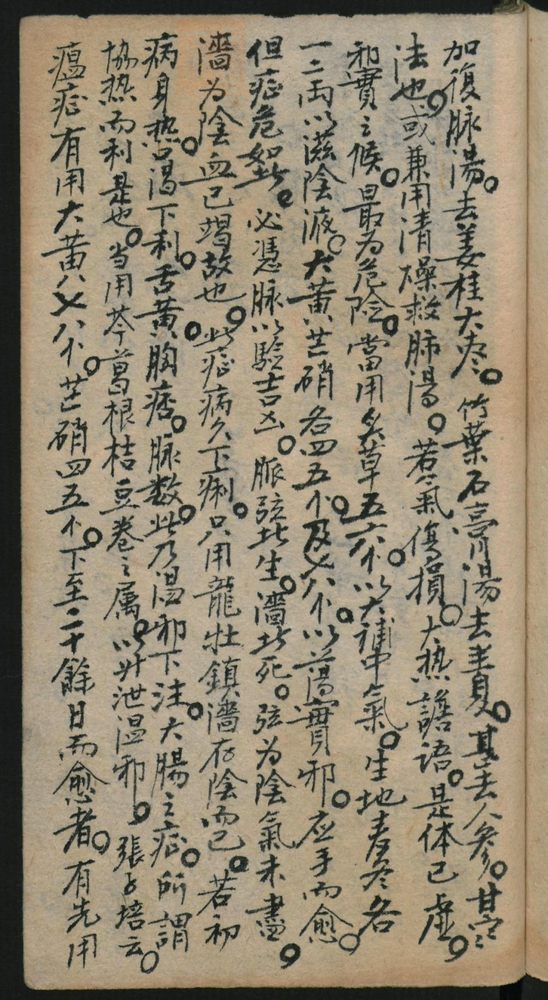 加復脉湯。去姜桂大枣。竹葉石膏湯去半夏。甚去人參。甘寒
法也。或兼用清燥救肺湯。若氣傷損。大热譫語。是体已虚。
邪實之候。最为危险。當用炙草五六个。以大補中氣。生地麦冬各
一二两以滋陰液。大黄芒硝各四五个。及七八个。以蕩實邪。应手而愈。
但症危如此。必憑脉以驗吉凶。脈弦者生。濇者死。弦为陰氣未盡。
濇为陰血已竭故也。此症病久下痢。只用龍牡鎮濇存陰而已。若初
病身热口渴下利。舌黄胸痞。脉数。此乃温邪下注大腸之症。所謂
協热而利是也。当用芩葛根桔豆卷之属。以升泄温邪。張上培云。
瘟症有用大黄六七八个。芒硝四五个。下至二十餘日而愈者。有先用